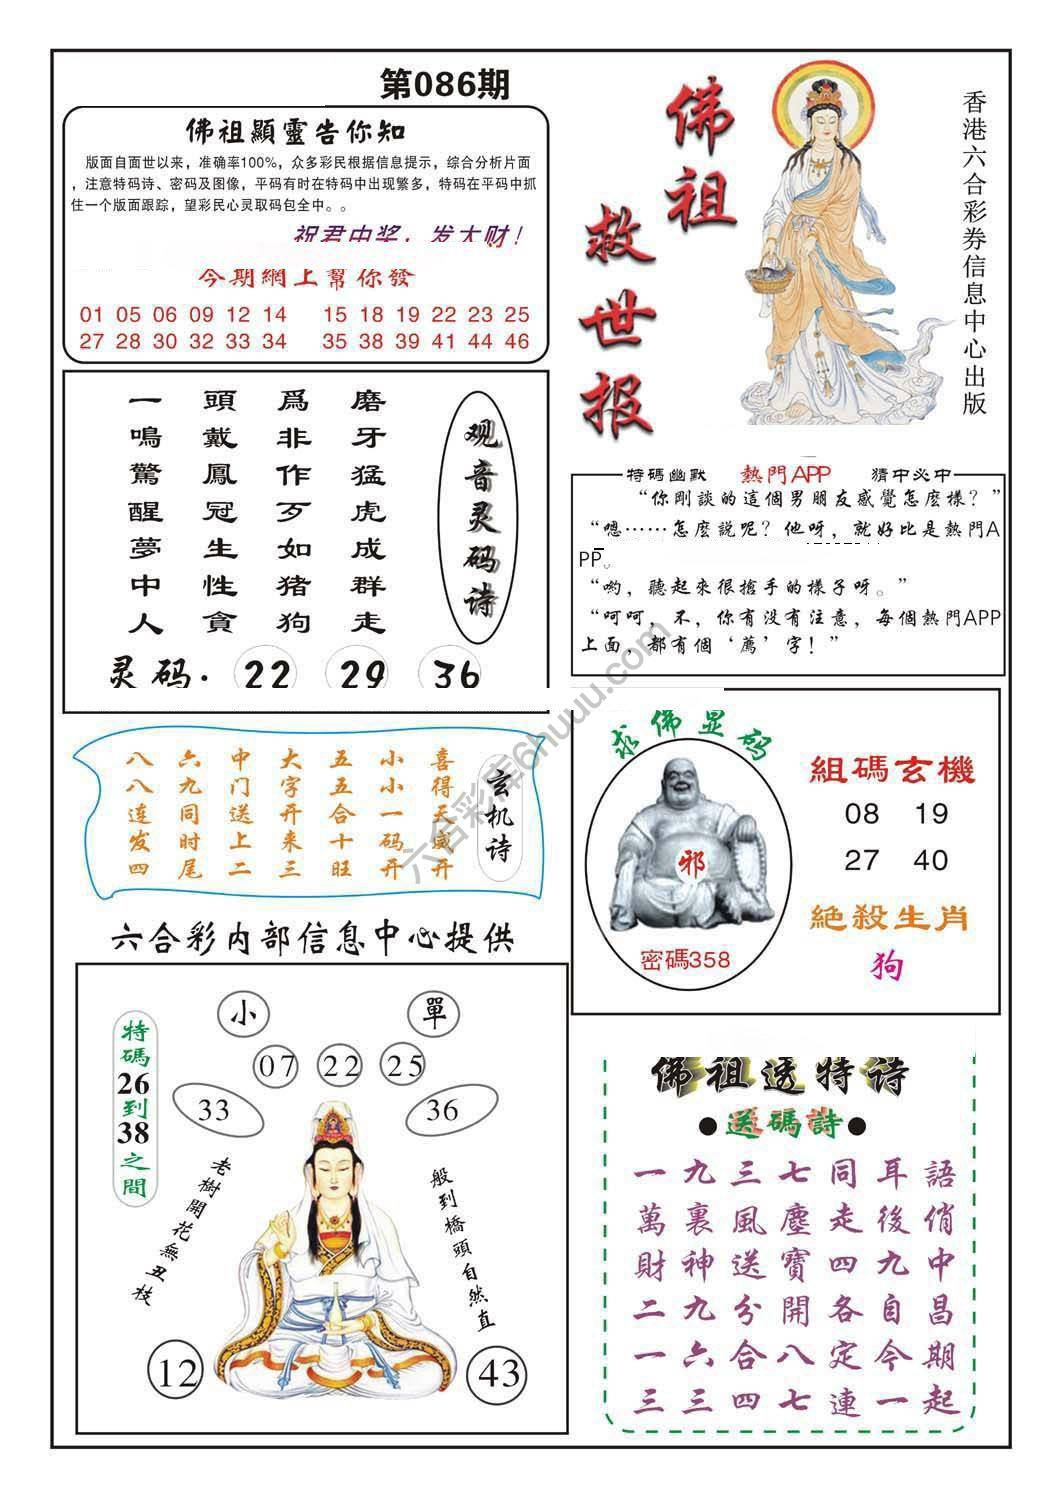 第086期
佛祖顯靈告你知
版面自面世以来，准确率100%，众多彩民根据信息提示，综合分析片面
，注意特码诗、密码及图像，平码有时在特码中出现繁多，特码在平码中抓
住一个版面跟踪，望彩民心灵取码包全中。。
祝君中奖，发大财！
今期網上幫你發
01 05 06 09 12 14 15 18 19 22 23 25
27 28 30 32 33 34 35 38 39 41 44 46
佛祖
救世报
香港六合彩券信息中心出版
观音灵码诗
磨牙猛虎成群走
爲非作歹如猪狗
頭戴鳳冠生性貪
一鳴驚醒夢中人
灵码. 22 29 36
特碼幽默 熱門APP 猜中必中
“你剛談的這個男朋友感覺怎麽樣？”
“嗯……怎麽說呢？他呀，就好比是熱門A
PP。
“喲，聽起來很搶手的樣子呀。”
“呵呵，不，你有没有注意，每個熱門APP
上面，都有個‘薦’字！”
玄机诗
喜得天威开
小小一码开
五五合十旺
大字开来三
中门送上二
六九同时尾
八八连发四
求佛显码
邪
密碼358
組碼玄機
08 19
27 40
絕殺生肖
狗
六合彩内部信息中心提供
小
單
07 22 25
33
36
特碼26到38之間
老樹開花無丑枝
般到橋頭自然直
12
43
佛祖透特诗
●送碼詩●
一九三七同耳語
萬裏風塵走後俏
財神送寶四九中
二九分開各自昌
一六合八定今期
三三四七連一起
六合彩库6huuu.com